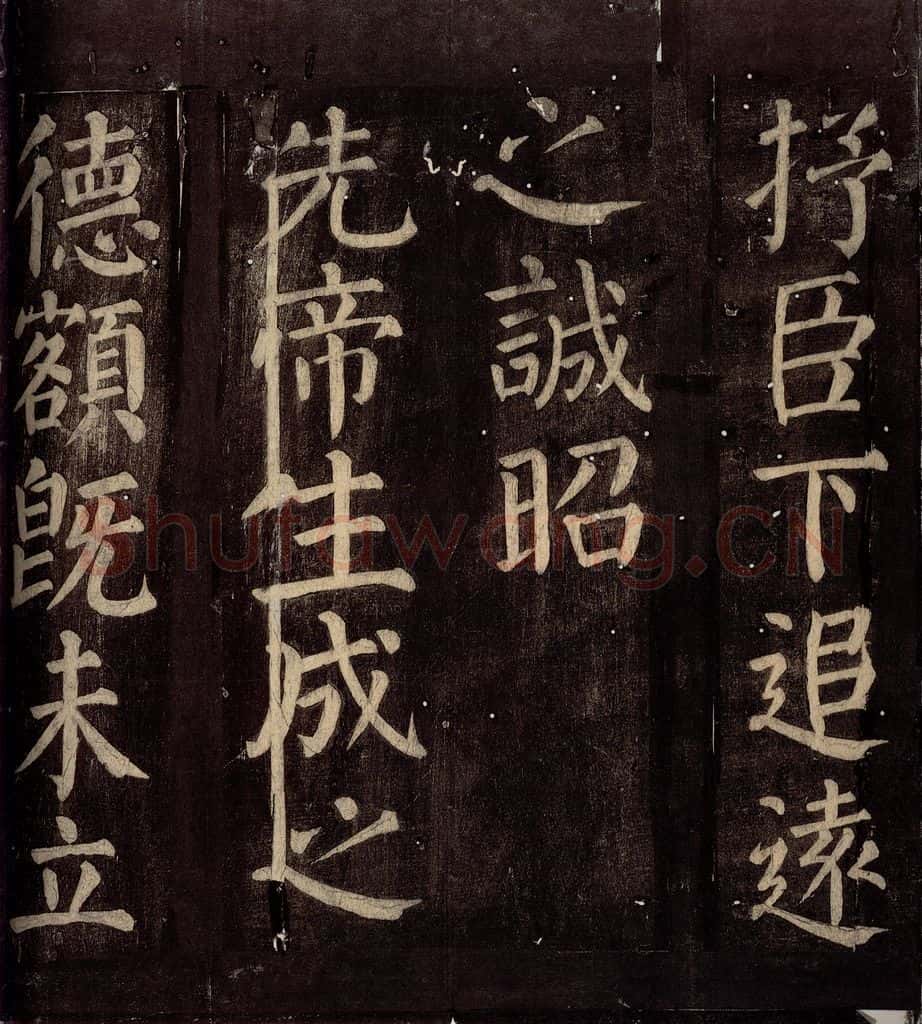 抒臣下追遠
之誠昭
先帝生成之
德額既未立
Shufawang.CN